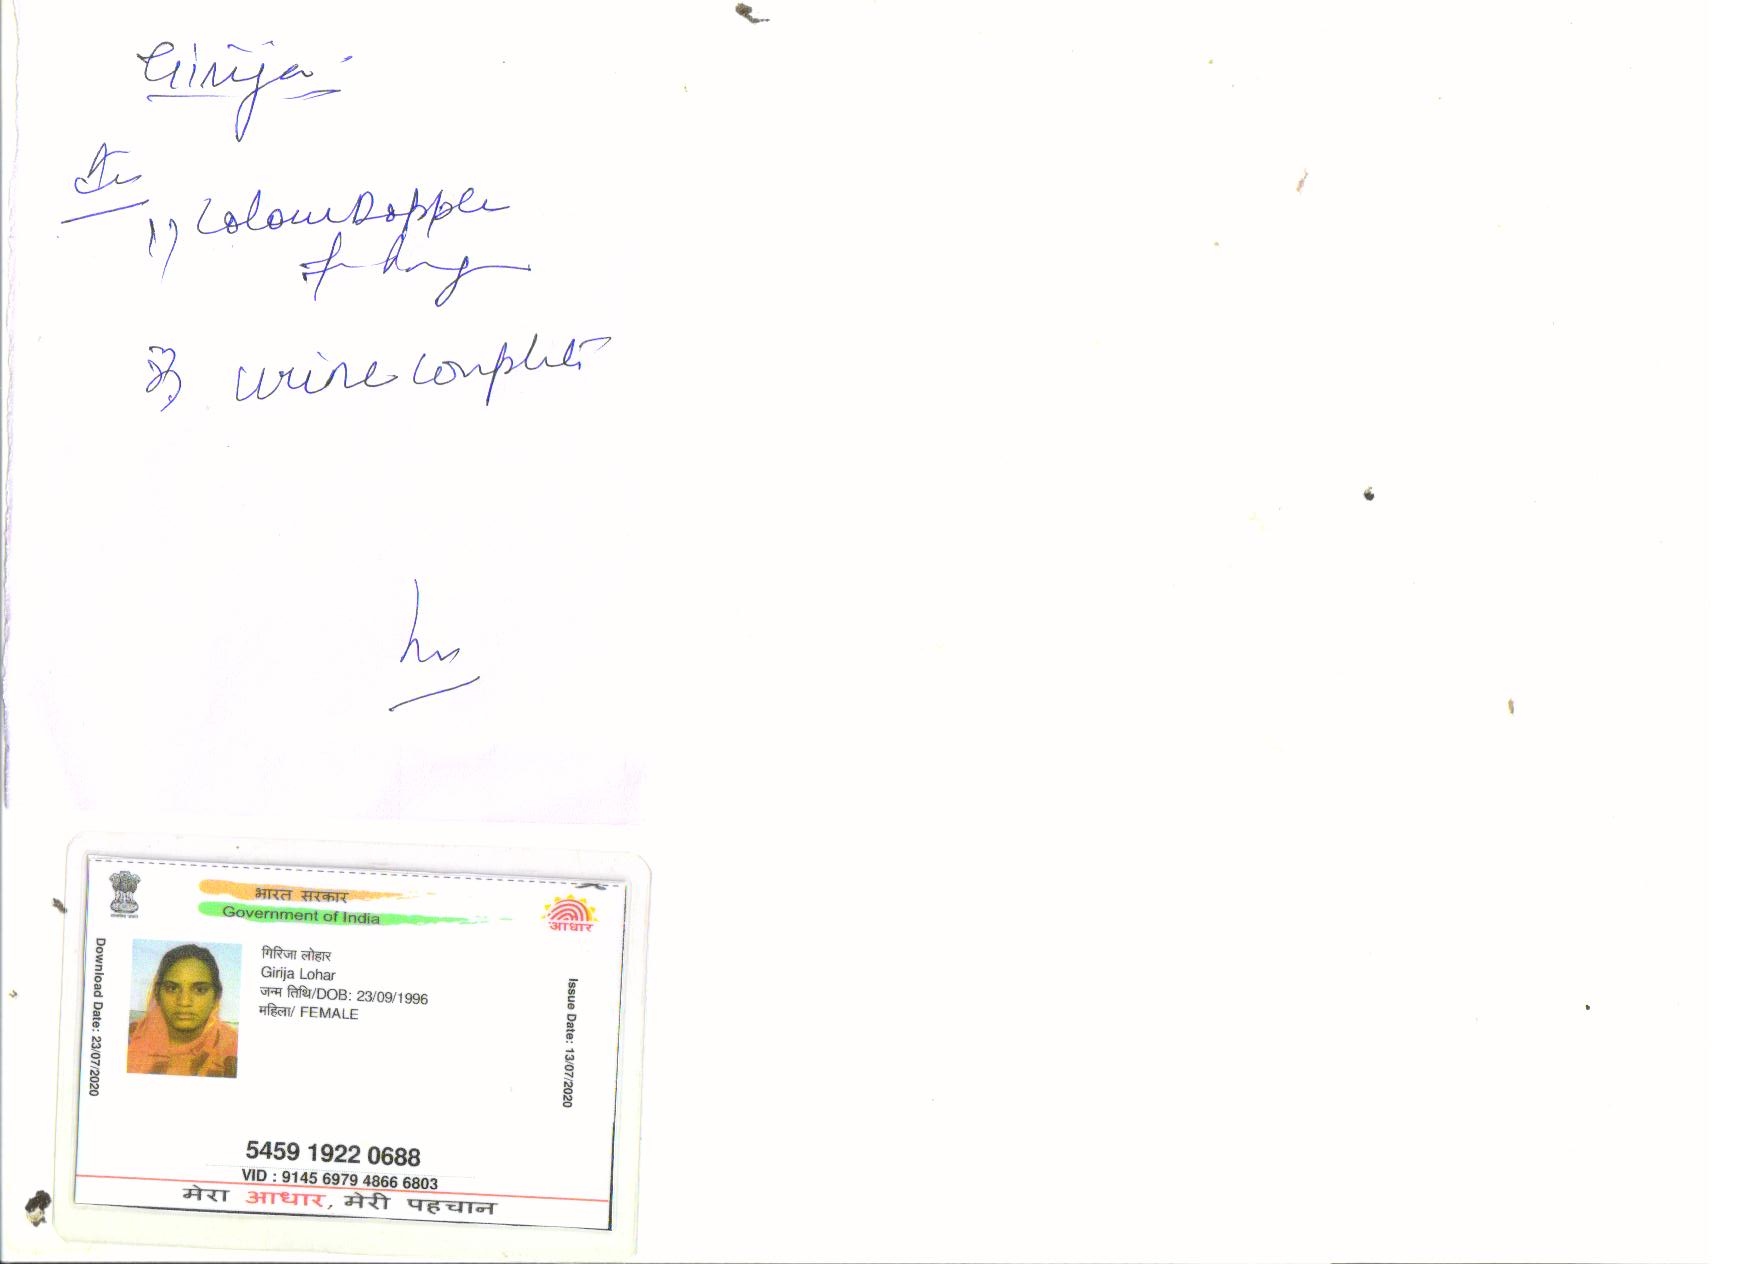 Girija
1) Colour Dopple
2) Urine Complete
भारत सरकार
Government of India
आधार
गिरिजा लोहार
Girija Lohar
जन्म तिथि/DOB: 23/09/1996
महिला/ FEMALE
Download Date: 23/07/2020
Issue Date: 13/07/2020
5459 1922 0688
VID : 9145 6979 4866 6803
मेरा आधार, मेरी पहचान